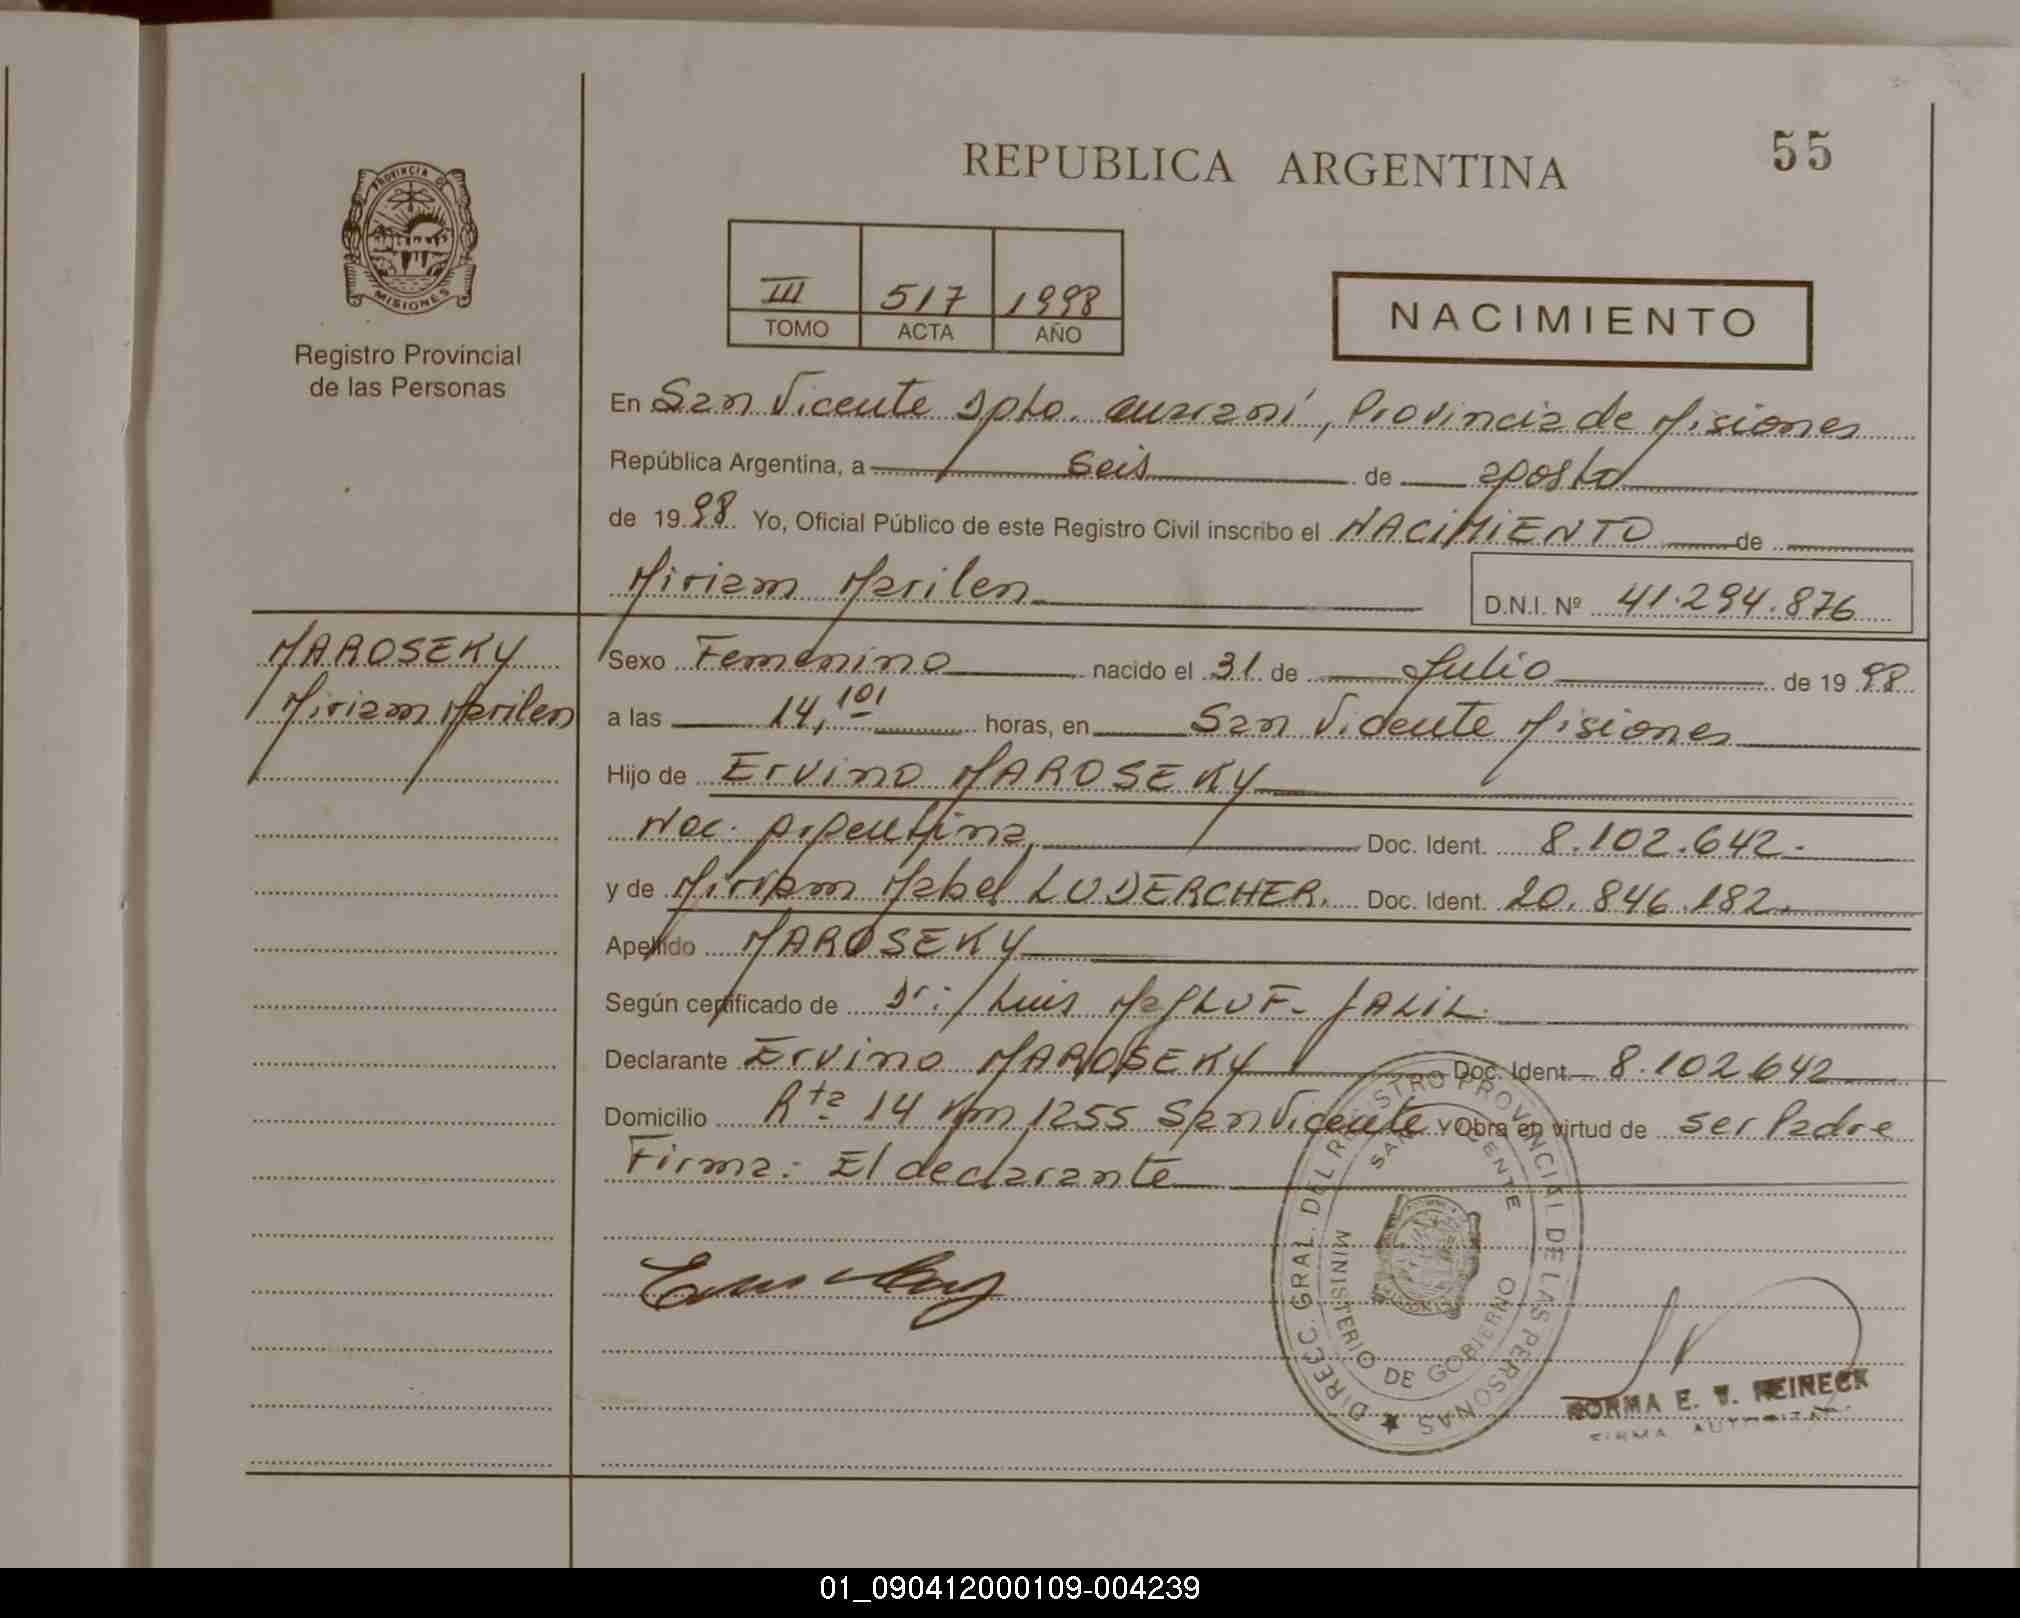 REPUBLICA ARGENTINA
55
PROVINCIA DE
MISIONES
Registro Provincial
de las Personas
III 517 1998
TOMO ACTA AÑO
NACIMIENTO
En San Vicente Dpto. Guaraní, Provincia de Misiones
República Argentina, a seis de agosto
de 1998 Yo, Oficial Público de este Registro Civil inscribo el NACIMIENTO de
Miriam Marilen
D.N.I. Nº 41.294.876
MAROSEKY
Miriam Marilen
Sexo Femenino nacido el 31 de Julio de 1998
a las 14,101 horas, en San Vicente Misiones
Hijo de Ervino MAROSEKY
Nac. Argentina, Doc. Ident. 8.102.642.
y de Miriam Mabel LUDERCHER. Doc. Ident. 20.846.182.
Apellido MAROSEKY
Según certificado de Dr: Luis MagLUF- JALIL.
Declarante Ervino MAROSEKY Doc. Ident. 8.102642
Domicilio Rta 14 Km 1255 San Vicente y Obra en virtud de ser Padre
Firma: El declarante
DIREC. GRAL. DEL REGISTRO PROVINCIAL DE LAS PERSONAS
SAN VICENTE
MINISTERIO DE GOBIERNO
NORMA E. V. REINECK
FIRMA AUTORIZADA
01_090412000109-004239